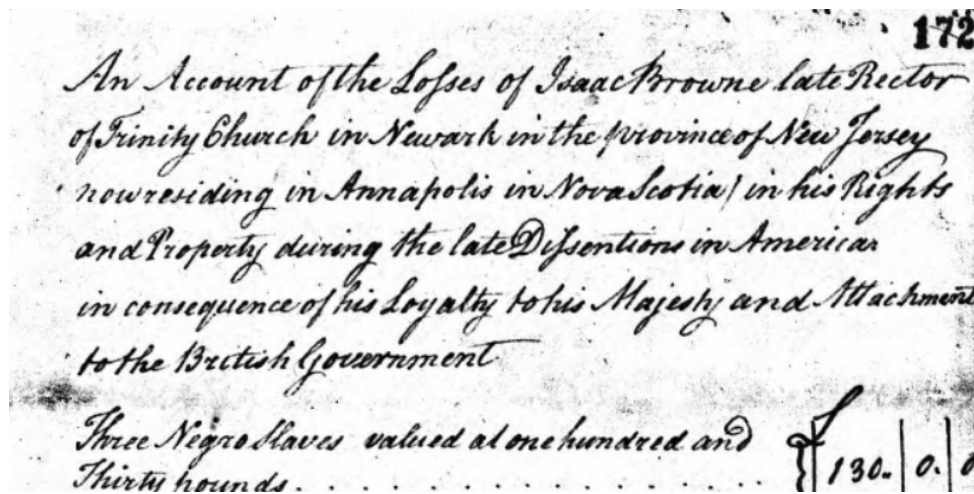 172
An Account of the Losses of Isaac Browne late Rector
of Trinity Church in Newark in the province of New Jersey
now residing in Annapolis in Nova Scotia) in his Rights
and Property during the late Dissentions in America
in consequence of his Loyalty to his Majesty and Attachment
to the British Government
Three Negro Slaves valued at one hundred and
Thirty pounds . . . . . . . . . . . . . . . { £ 130. 0. 0